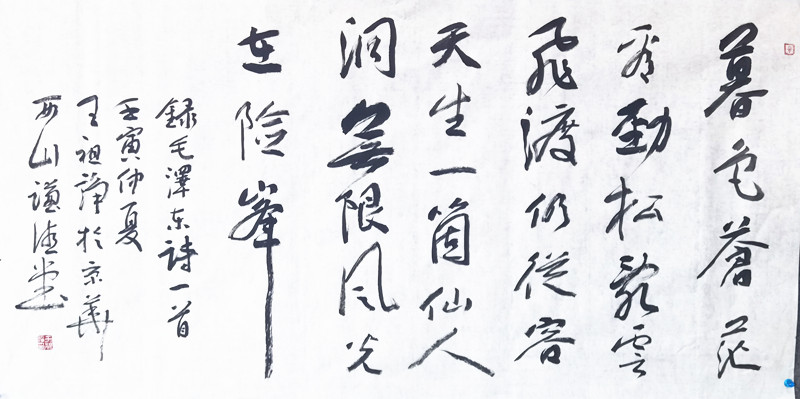 暮色蒼茫
看勁松亂雲
飛渡仍從容
天生一箇仙人
洞無限風光
在險峯
録毛澤東詩一首
壬寅仲夏
王祖諍於京華
西山謙德堂